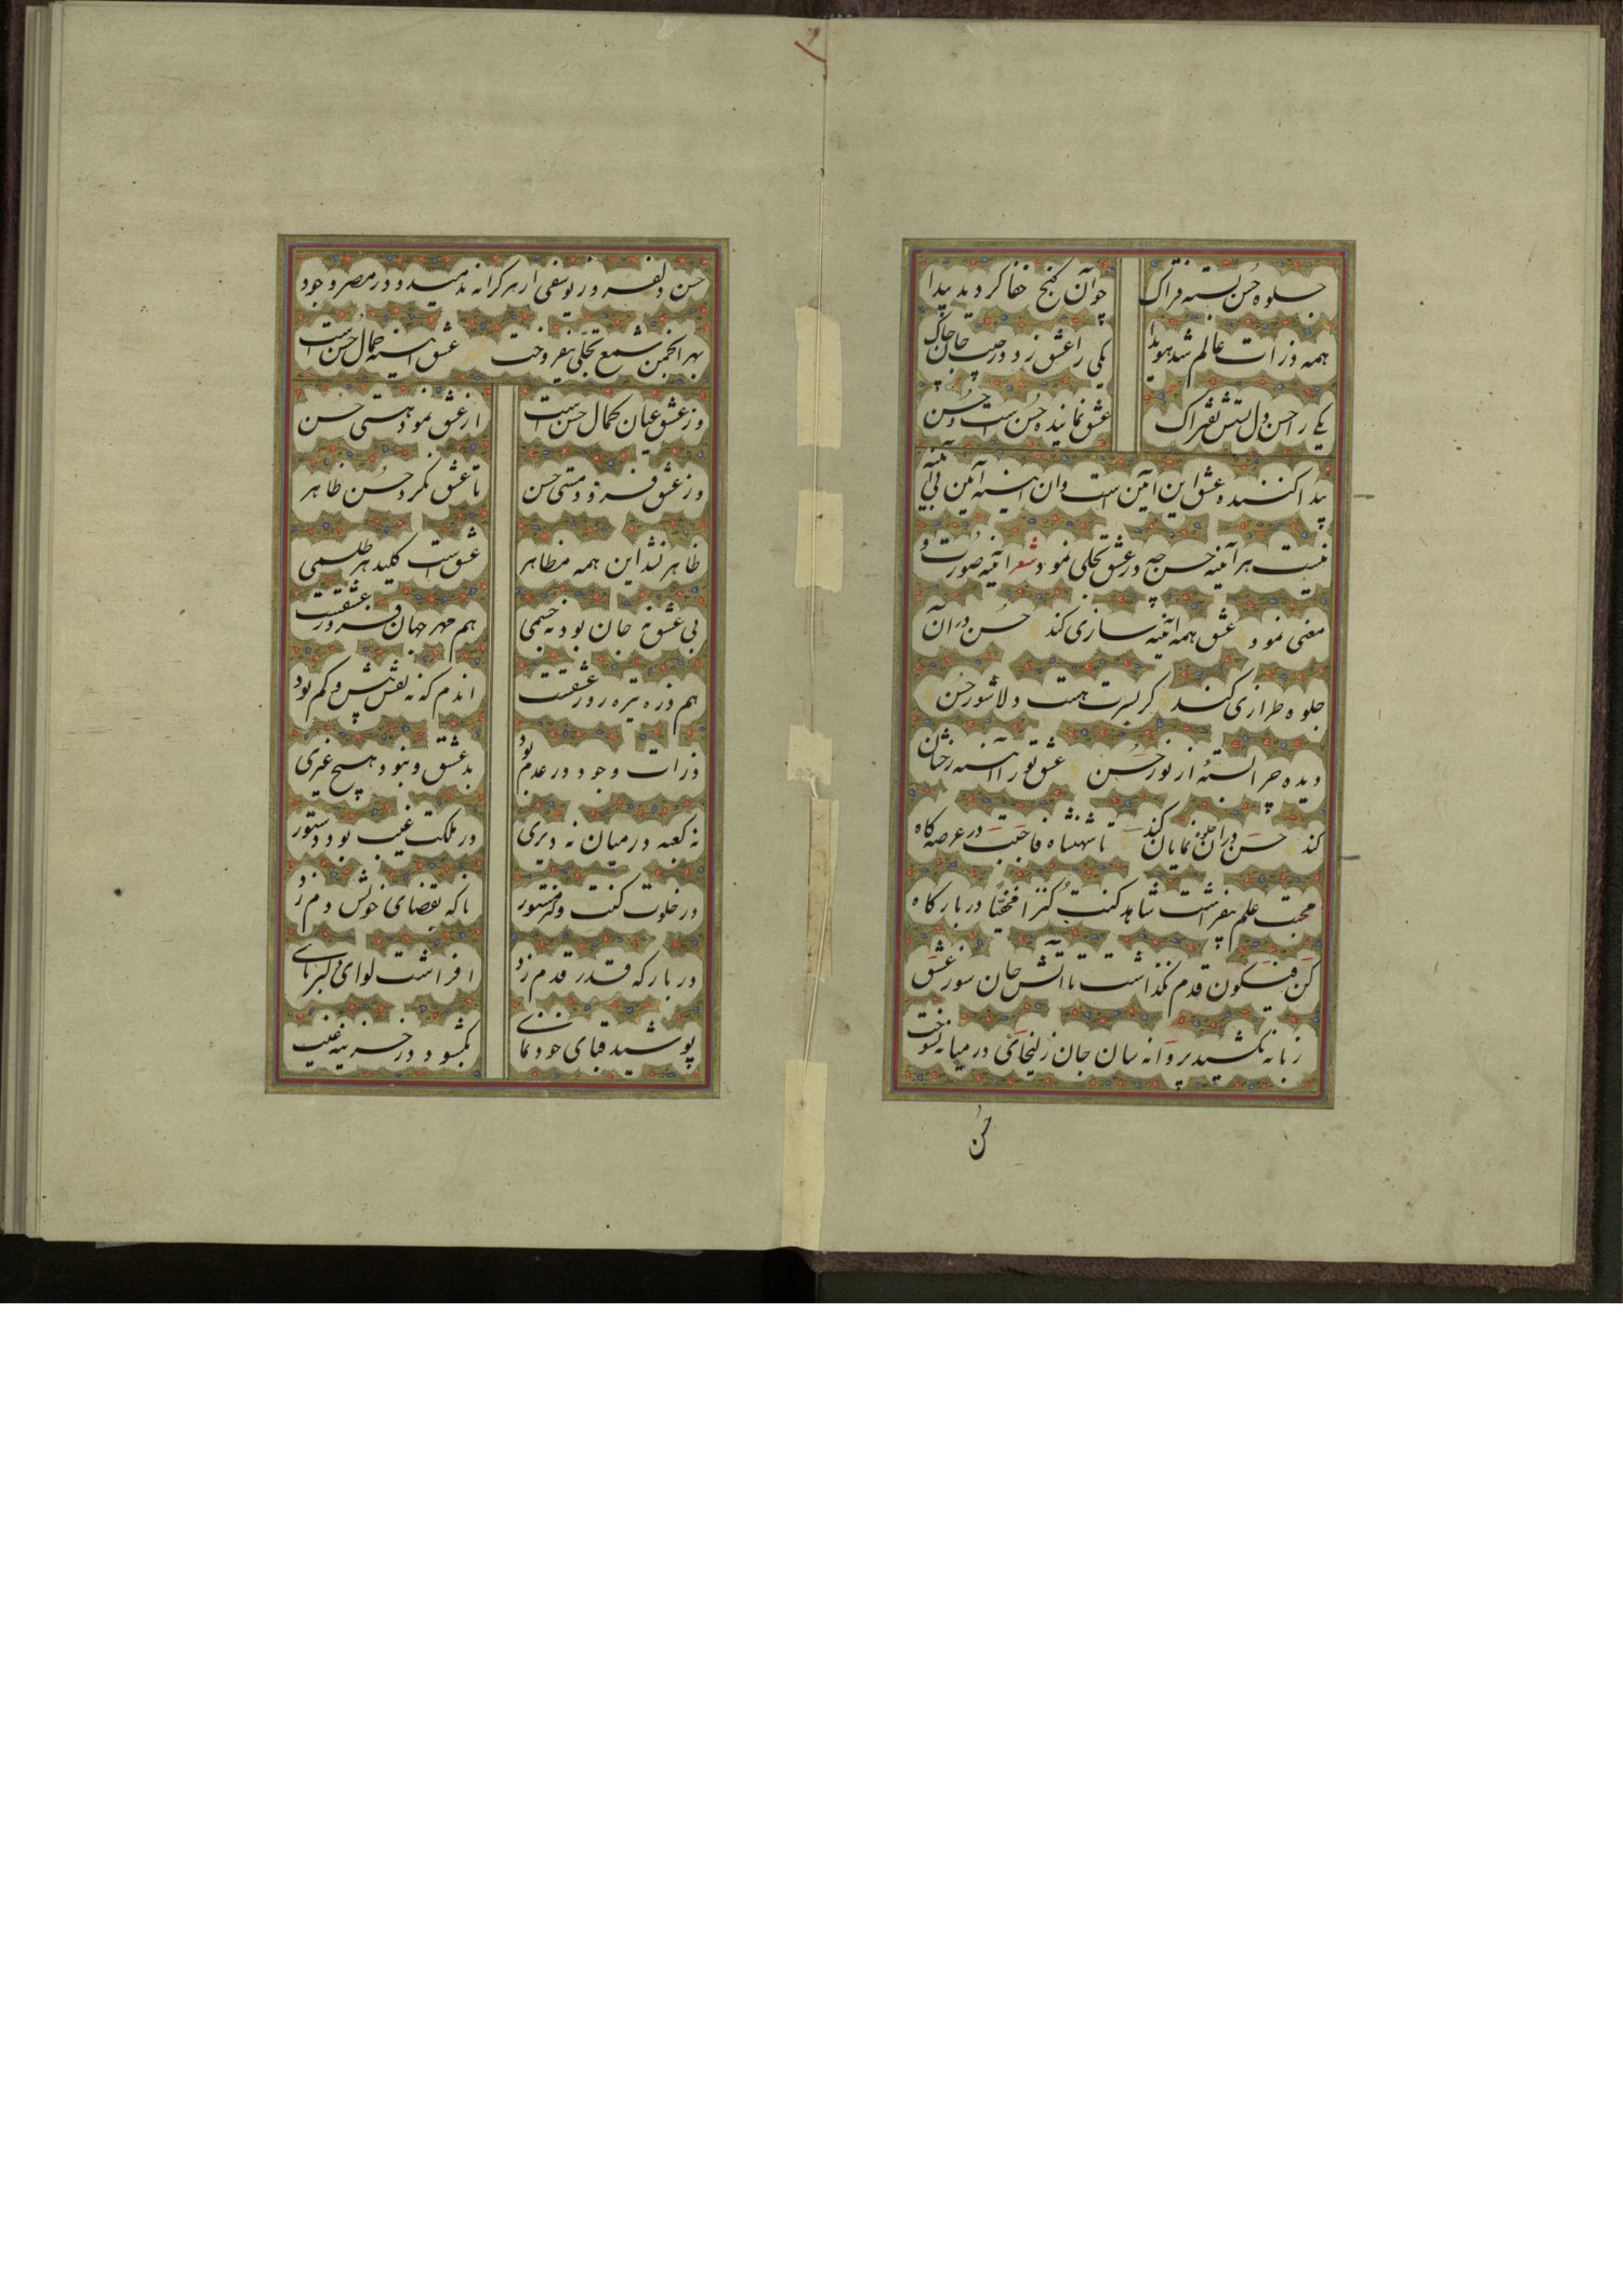 جلوه حسن بسته فتراک چو آن گنج خفا گردید پیدا
همه ذرات عالم شد هویدا یکی را عشق زد در جیب جان چاک
یکی را حسن دل بستش بفتراک عشق نماینده حسن است و حسن
پیدا کننده عشق این آیین است وان آینه آیین بی آینه
نیست هر آینه حسن چه در عشق تجلی نمود شعر آینه صورت و
معنی نمود عشق همه آینه سازی کند حسن در آن
جلوه طرازی کند گر بسرت هست دلا شور حسن
دیده چرا بسته از نور حسن عشق تو را آینه رخشان
کند حسن در آن جلوه نمایان کند تا شهنشاه فاحببت در عرصه گاه
محبت علم بیفراشت شاهد کنت کنزا مخفیا در بارگاه
کن فیکون قدم نگذاشت تا آتش جان سوز عشق
زبانه نکشید پروانه سان جان زلیخای در میانه نسوخت
حسن
حسن دلفروز یوسفی از هر کرانه ندمید و در مصر وجود
بهر انجمن شمع تجلی نیفروخت عشق آینه جمال حسن است
وز عشق عیان کمال حسن است از عشق نمود هستی حسن
وز عشق فزود مستی حسن تا عشق نکرد حسن ظاهر
ظاهر نشد این همه مظاهر عشق است کلید هر طلسمی
بی عشق نه جان بود نه جسمی هم مهر جهان فروز عشقست
هم ذره تیره روز عشقست اندم که نه نقش بیش و کم بود
ذرات وجود در عدم بود بد عشق و نبود هیچ غیری
نه کعبه در میان نه دیری در ملکت غیب بود دستور
در خلوت کنت کنز مستور ناگه بقضای خویش دم زد
در بارگه قدر قدم زد افراشت لوای دلبربای
پوشید قبای خود نمای بگشود در خزینه غیب